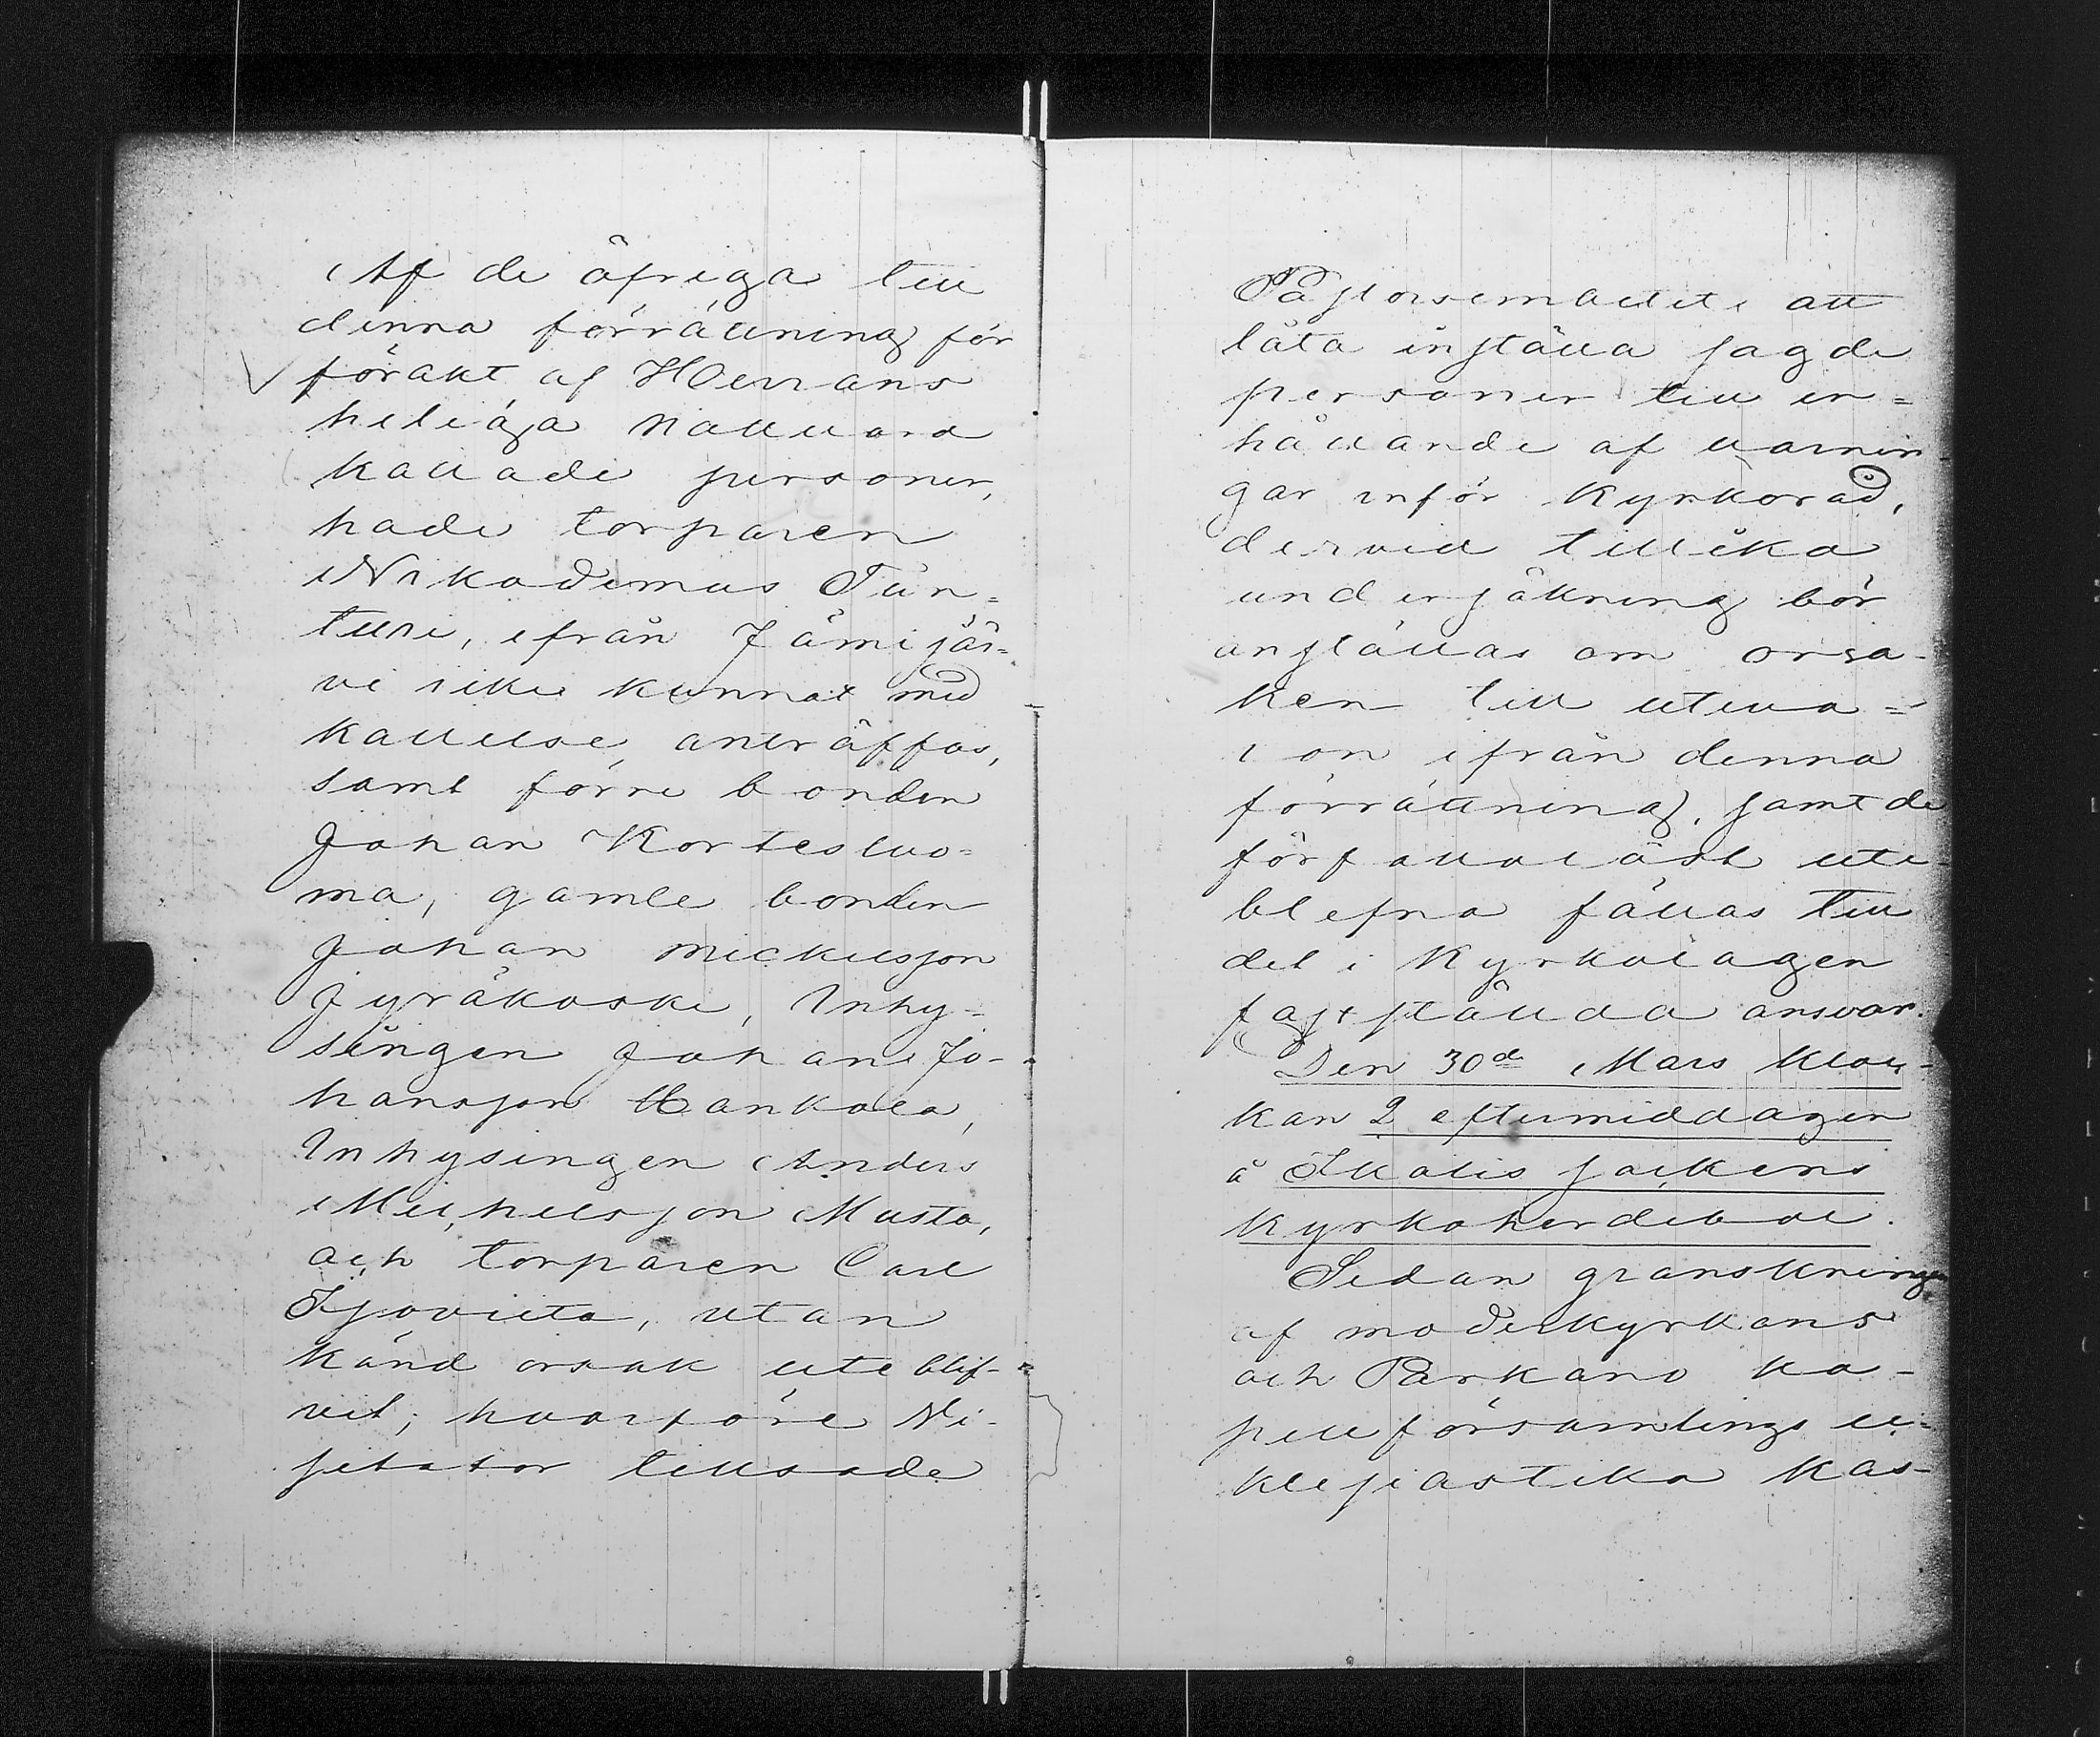 Af de öfriga till
denna förrättning för
förakt af HErrans
heliga Nattvard
kallade personer,
hade torparen
Nikodemus Tun-
turi, ifrån Jämijär-
vi icke kunnat med
kallelse anträffas,
samt förre bonden
Johan Kortesluo-
ma, gamle bonden
Johan Mickelsson
Jyräkoski, Inhy-
singen Johan Jo-
hansson Hankala,
Inhysingen Anders
Michelsson Musta,
och torparen Carl
Isoviita, utan
känd orsak uteblif-
vit; hvarföre Vi-
sitator tillsade
Pastorsembetet att
låta inställa sagde
personer till er-
hållande af varnin-
gar inför Kyrkoråd,
dervid tillika
undersökning bör
anställas om orsa-
ken till uteva-
ron ifrån denna
förrättning, samt de
förfallolöst ute-
blefna fällas till
det i Kyrkolagen
fastställda ansvar.
Den 30de Mars kloc-
kan 2 eftermiddagen
å Ikalis sockens
kyrkoherdebol.
Sedan granskning
af moderkyrkans
och Parkano ka-
pellförsamlings ec-
klesiastika kas-